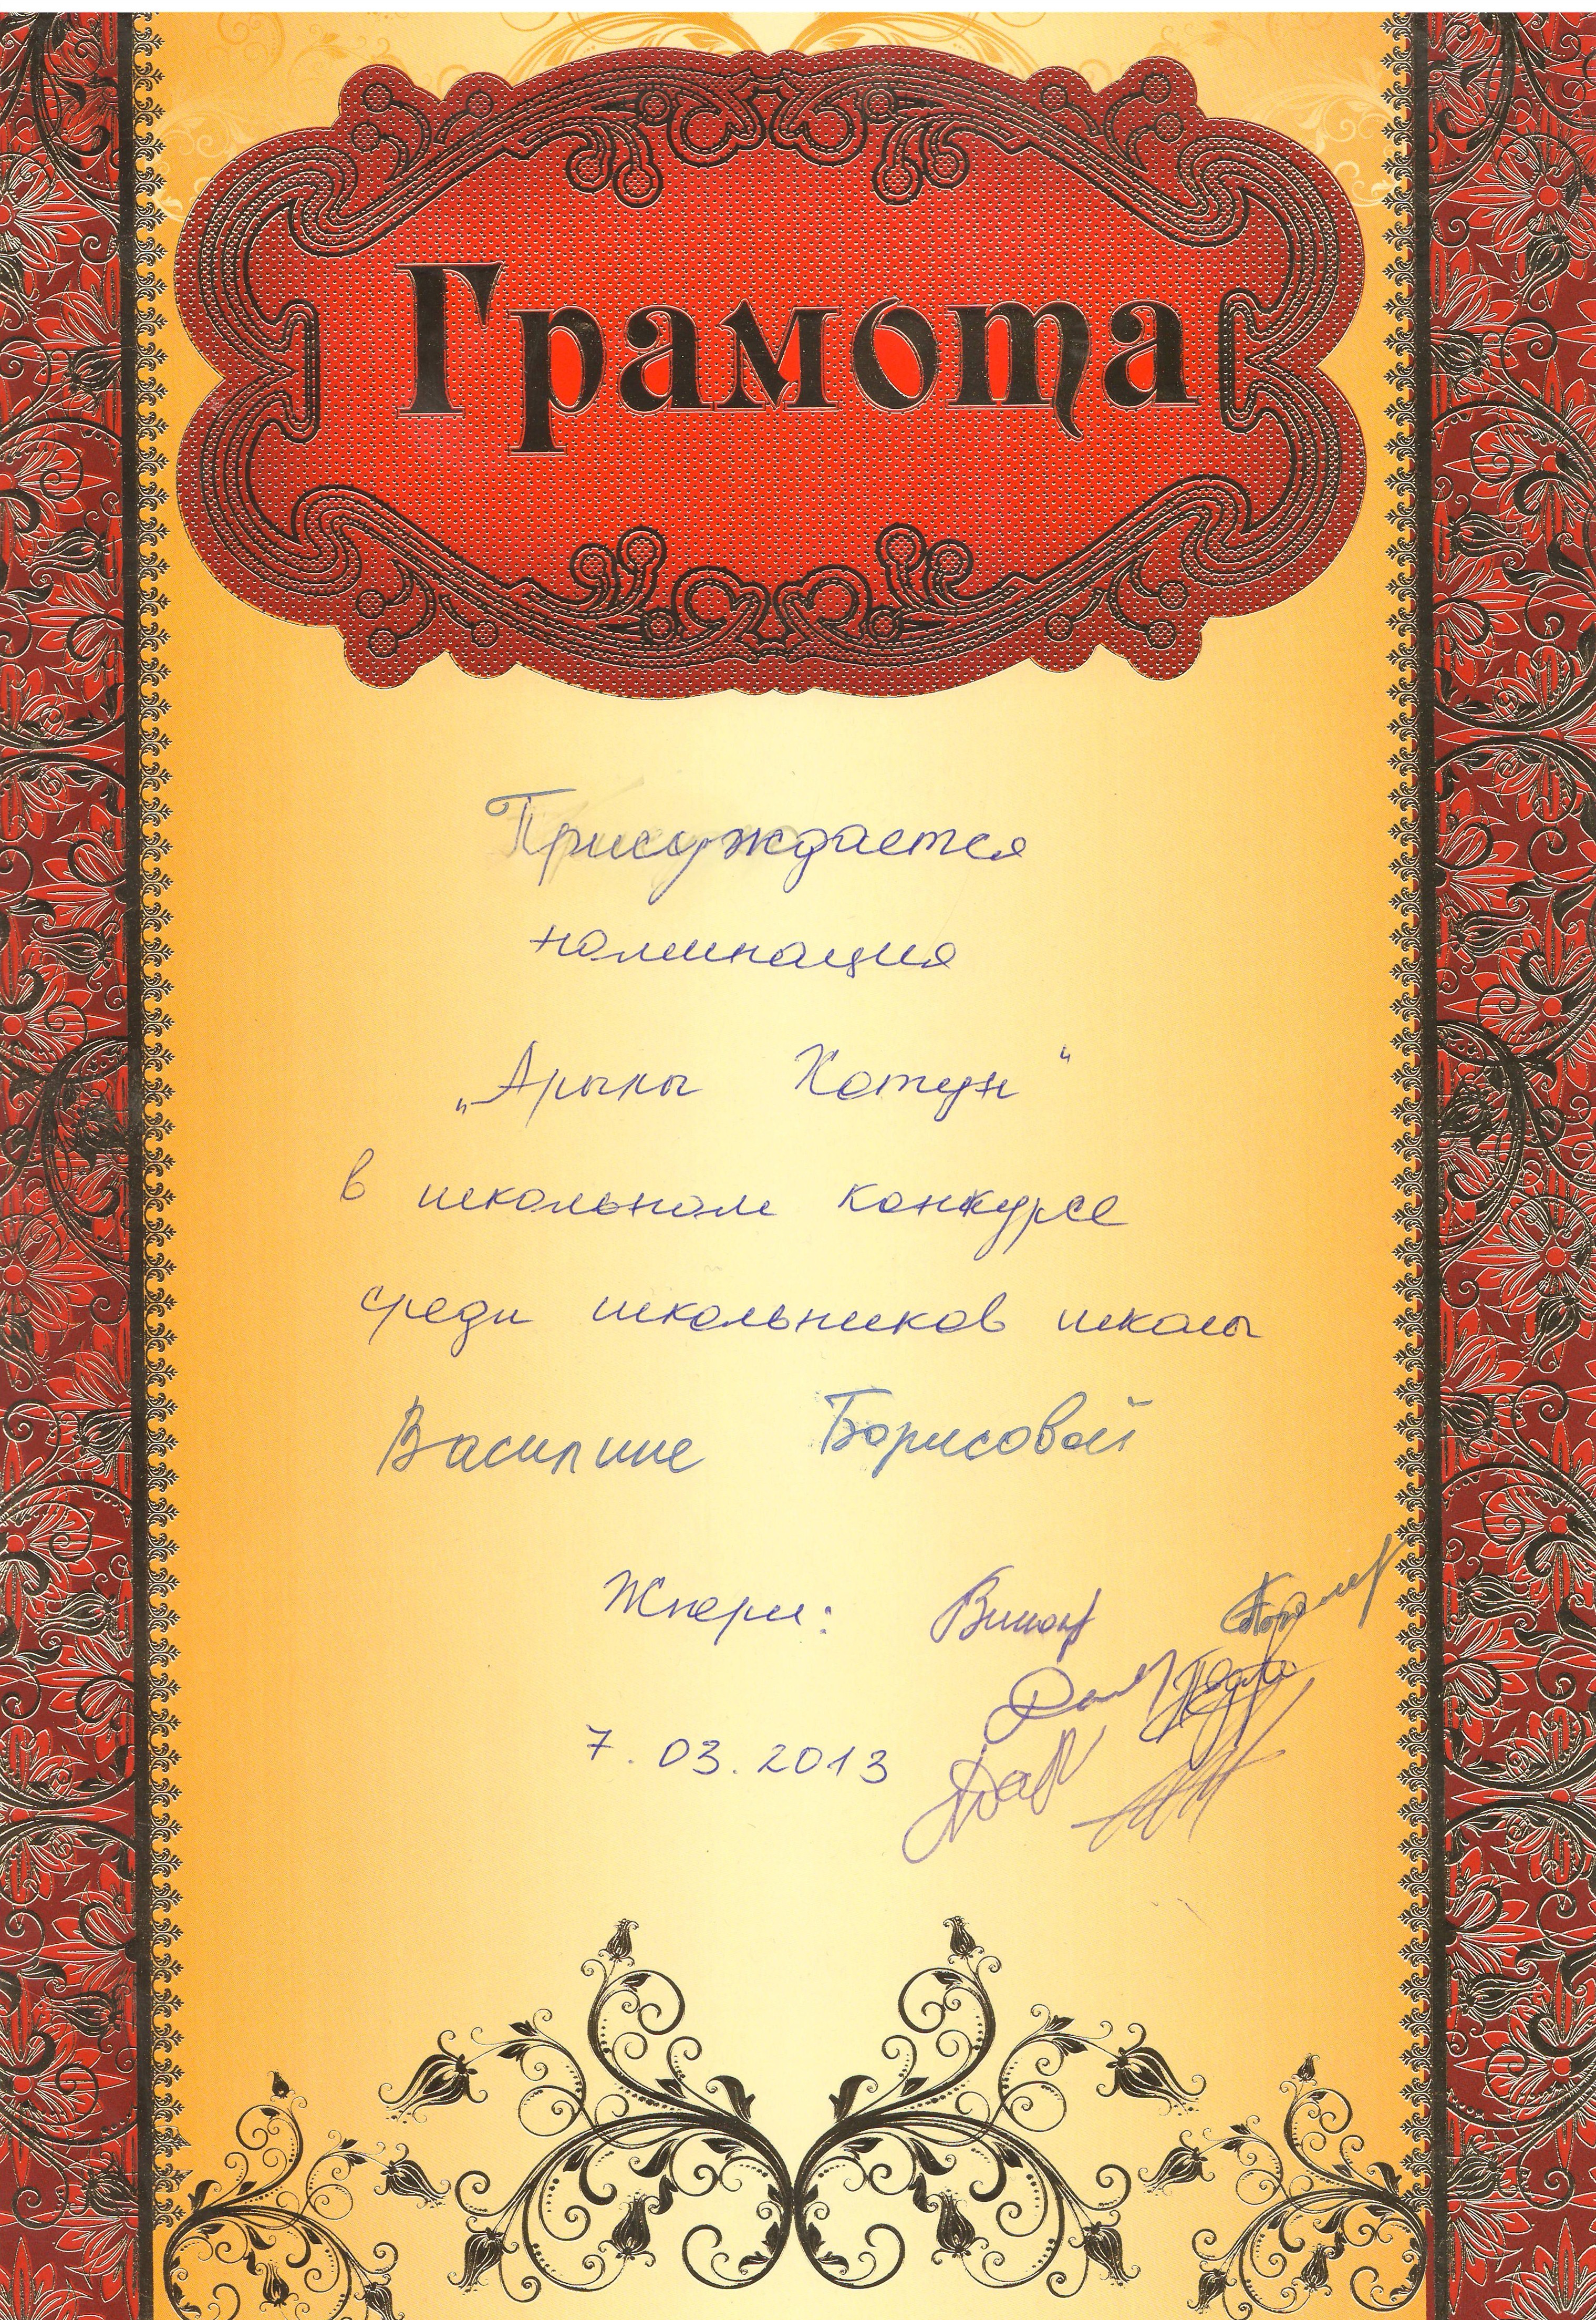 Грамота
Присуждается
номинация
„Арылы Хотун“
в школьном конкурсе
среди школьников школы
Васи﻿лине Борисовой
Жюри:
7.03.2013